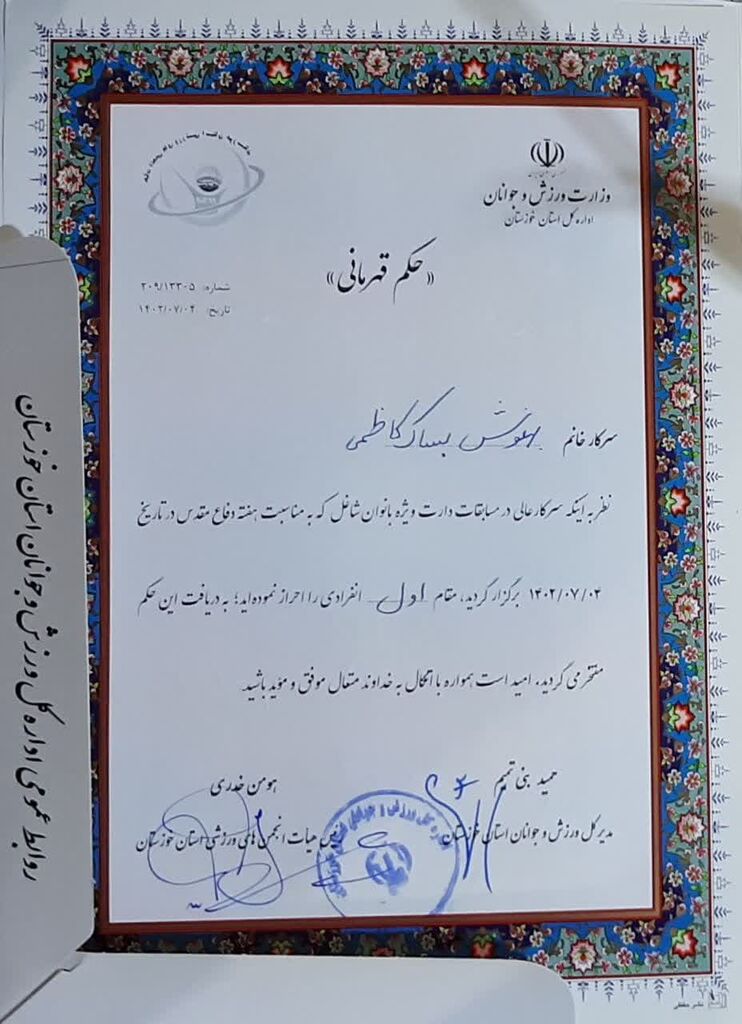 وزارت ورزش و جوانان
اداره کل استان خوزستان
«حکم قهرمانی»
شماره: ۲۰۹/۱۳۳۰۵
تاریخ: ۱۴۰۲/۰۷/۰۴
سرکار خانم بساک کاظمی
نظر به اینکه سرکار عالی در مسابقات دارت ویژه بانوان شاغل که به مناسبت هفته دفاع مقدس در تاریخ
۱۴۰۲/۰۷/۰۴ برگزار گردید، مقام اول انفرادی را احراز نموده‌اید؛ به دریافت این حکم
مفتخر می گردید. امید است همواره با اتکال به خداوند متعال موفق و مؤید باشید.
حمید بنی تمیم
مدیر کل ورزش و جوانان استان خوزستان
هومن خدری
رئیس هیأت انجمن های ورزشی استان خوزستان
روابط عمومی اداره کل ورزش و جوانان استان خوزستان